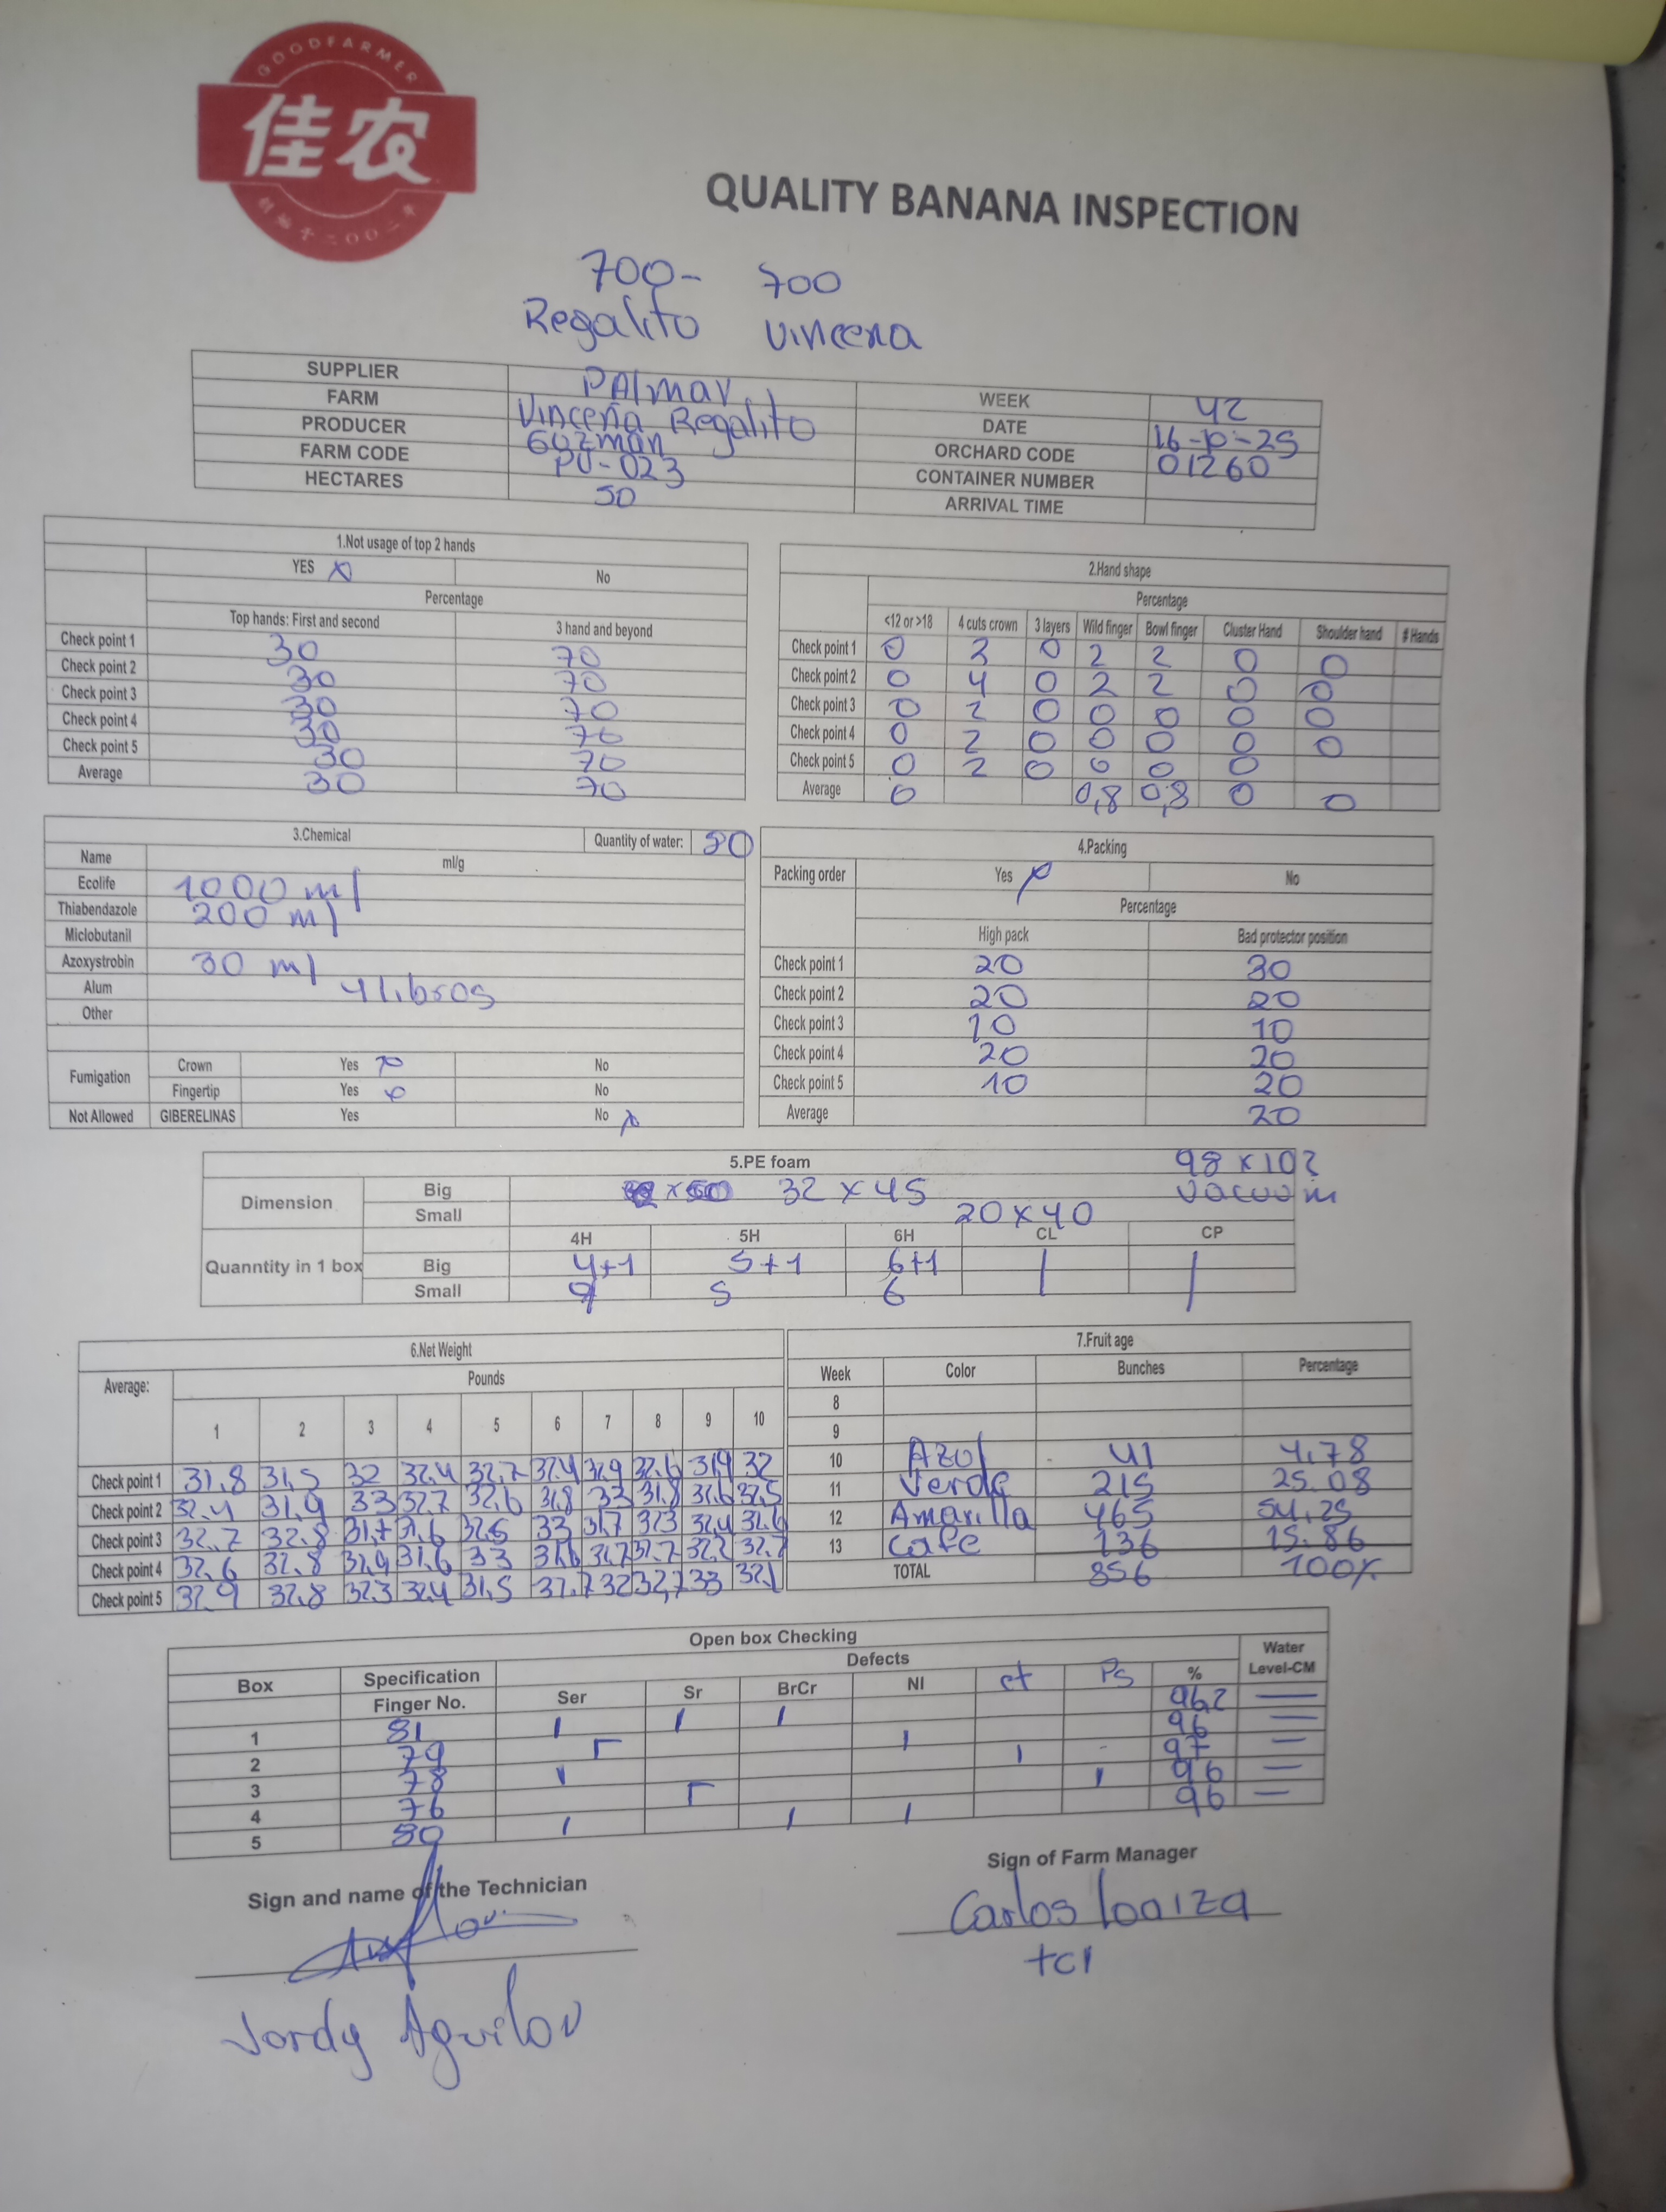 GOODFARMER
佳农
创始于二〇〇二年
QUALITY BANANA INSPECTION
700- 700
Regalito Vincena
SUPPLIER PAlmar WEEK 42
FARM Vinceña Regalito DATE 16-10-25
PRODUCER Guzman ORCHARD CODE 01260
FARM CODE PU-023 CONTAINER NUMBER
HECTARES 50 ARRIVAL TIME
1.Not usage of top 2 hands
YES x No
Percentage
Top hands: First and second 3 hand and beyond
Check point 1 30 70
Check point 2 30 70
Check point 3 30 70
Check point 4 30 70
Check point 5 30 70
Average 30 70
2.Hand shape
Percentage
<12 or >18 4 cuts crown 3 layers Wild finger Bowl finger Cluster Hand Shoulder hand # Hands
Check point 1 0 2 0 2 2 0 0
Check point 2 0 4 0 2 2 0 0
Check point 3 0 2 0 0 0 0 0
Check point 4 0 2 0 0 0 0 0
Check point 5 0 2 0 0 0 0
Average 0 0,8 0,8 0 0
3.Chemical Quantity of water: 80
Name ml/g
Ecolife 1000 ml
Thiabendazole 200 ml
Miclobutanil
Azoxystrobin 30 ml
Alum 4 libros
Other
Fumigation Crown Yes x No
Fingertip Yes x No
Not Allowed GIBERELINAS Yes No x
4.Packing
Packing order Yes x No
Percentage
High pack Bad protector position
Check point 1 20 30
Check point 2 20 20
Check point 3 10 10
Check point 4 20 20
Check point 5 10 20
Average 20
5.PE foam 98 x 102
Dimension Big 32 x 45 vacuum
Small 20 x 40
4H 5H 6H CL CP
Quanntity in 1 box Big 4+1 5+1 6+1
Small 5 6
6.Net Weight
Average: Pounds
1 2 3 4 5 6 7 8 9 10
Check point 1 31.8 31,5 32 32.4 32.7 32.4 32.9 32.6 31.9 32
Check point 2 32.4 31.9 33 32.7 32.6 31.8 33 31.8 31.6 32.5
Check point 3 32.7 32.8 31.7 31.6 32.5 33 31.7 32.3 32.4 31.6
Check point 4 32.6 32.8 32.9 31.6 33 31.6 32.7 32.7 32.2 32.7
Check point 5 32.9 32.8 32.3 32.4 31.5 32.7 32 32,7 33 32.1
7.Fruit age
Week Color Bunches Percentage
8
9
10 Azul 41 4,78
11 Verde 215 25.08
12 Amarilla 465 54,25
13 Cafe 136 15.86
TOTAL 856 100%
Open box Checking
Box Specification Defects Water
Finger No. Ser Sr BrCr NI ct Ps % Level-CM
1 81 1 1 1 96,2 —
2 79 1 96 —
3 78 1 97 —
4 76 1 96 —
5 80 1 1 1 96 —
Sign and name of the Technician
Jordy Aguilar
Sign of Farm Manager
Carlos loaiza
tcl